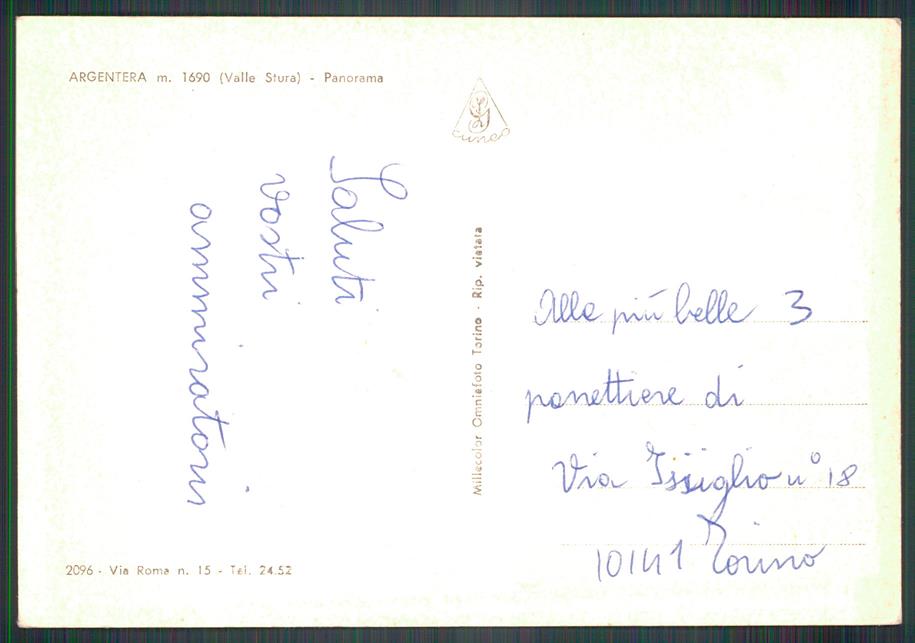 ARGENTERA m. 1690 (Valle Stura) - Panorama
CUNEO
Saluti
vostri
ammiratori
Millecolor Omniafoto Torino - Rip. vietata
Alle più belle 3
panettiere di
Via Issiglio n° 18
10141 Torino
2096 - Via Roma n. 15 - Tel. 24.52